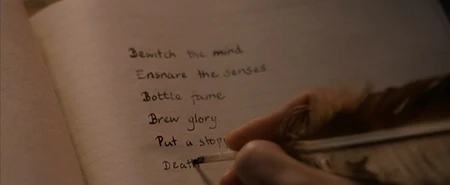 Bewitch the mind
Ensnare the senses
Bottle fame
Brew glory
Put a stop
Death